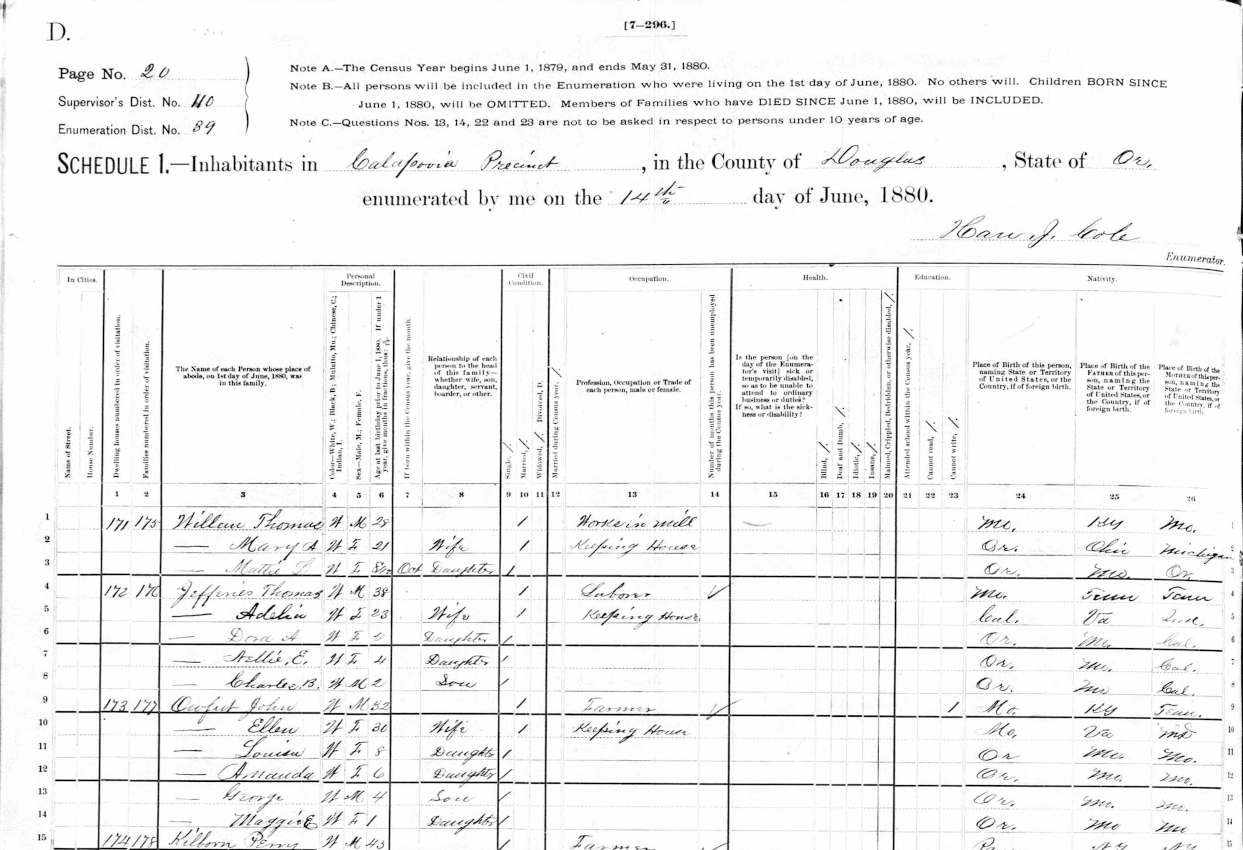 D.
[7-296.]
Page No. 20
Supervisor's Dist. No. 40
Enumeration Dist. No. 89
Note A.—The Census Year begins June 1, 1879, and ends May 31, 1880.
Note B.—All persons will be included in the Enumeration who were living on the 1st day of June, 1880. No others will. Children BORN SINCE
June 1, 1880, will be OMITTED. Members of Families who have DIED SINCE June 1, 1880, will be INCLUDED.
Note C.—Questions Nos. 13, 14, 22 and 23 are not to be asked in respect to persons under 10 years of age.
SCHEDULE 1.—Inhabitants in Calapooia Precinct, in the County of Douglas, State of Or.
enumerated by me on the 14th day of June, 1880.
Cole
Enumerator.
In Cities. Personal Description. Civil Condition. Occupation. Health. Education. Nativity.
Name of Street.
House Number.
Dwelling houses numbered in order of visitation.
Families numbered in order of visitation.
The Name of each Person whose place of abode, on 1st day of June, 1880, was in this family.
Color—White, W.; Black, B.; Mulatto, Mu.; Chinese, C.; Indian, I.
Sex—Male, M.; Female, F.
Age at last birthday prior to June 1, 1880. If under 1 year, give months in fractions, thus:
If born within the Census year, give the month.
Relationship of each person to the head of this family—whether wife, son, daughter, servant, boarder, or other.
Single, /.
Married, /.
Widowed, /. Divorced, D.
Married during Census year, /.
Profession, Occupation or Trade of each person, male or female.
Number of months this person has been unemployed during the Census year.
Is the person [on the day of the Enumerator's visit] sick or temporarily disabled, so as to be unable to attend to ordinary business or duties? If so, what is the sickness or disability?
Blind, /.
Deaf and Dumb, /.
Idiotic, /.
Insane, /.
Maimed, Crippled, Bedridden, or otherwise disabled, /.
Attended school within the Census year, /.
Cannot read, /.
Cannot write, /.
Place of Birth of this person, naming State or Territory of United States, or the Country, if of foreign birth.
Place of Birth of the FATHER of this person, naming the State or Territory of United States, or the Country, if of foreign birth.
Place of Birth of the MOTHER of this person, naming the State or Territory of United States, or the Country, if of foreign birth.
1 2 3 4 5 6 7 8 9 10 11 12 13 14 15 16 17 18 19 20 21 22 23 24 25 26
1 171 175 Thomas W M 28 / Works in Mill Mo. Ky Mo. 1
2 — Mary A W F 21 Wife / Keeping House Or. Ohio Michigan 2
3 — Mattie L W F 8/12 Oct Daughter / Or. Mo. Or. 3
4 172 176 Jefferies Thomas W M 38 / Laborer Mo. Tenn Tenn 4
5 — Adelia W F 23 Wife / Keeping House Cal. Va Ind. 5
6 — Dora A W F Daughter / Or. Mo. Cal. 6
7 — Nellie, E. W F 4 Daughter / Or. Mo. Cal. 7
8 — Charles, B. W M 2 Son / Or. Mo Cal. 8
9 173 177 John W M 52 / Farmer / Mo. Ky Tenn. 9
10 — Ellen W F 30 Wife / Keeping House Mo. Va 10
11 — Louisa W F 8 Daughter / Or Mo. Mo. 11
12 — Amanda W F 6 Daughter / Or. Mo. Mo. 12
13 — George W M 4 Son / Or. Mo. Mo. 13
14 — Maggie E W F 1 Daughter / Or. Mo Mo 14
15 174 178 Kilborn Perry W M 43 / Farmer N.Y. N.Y. 15